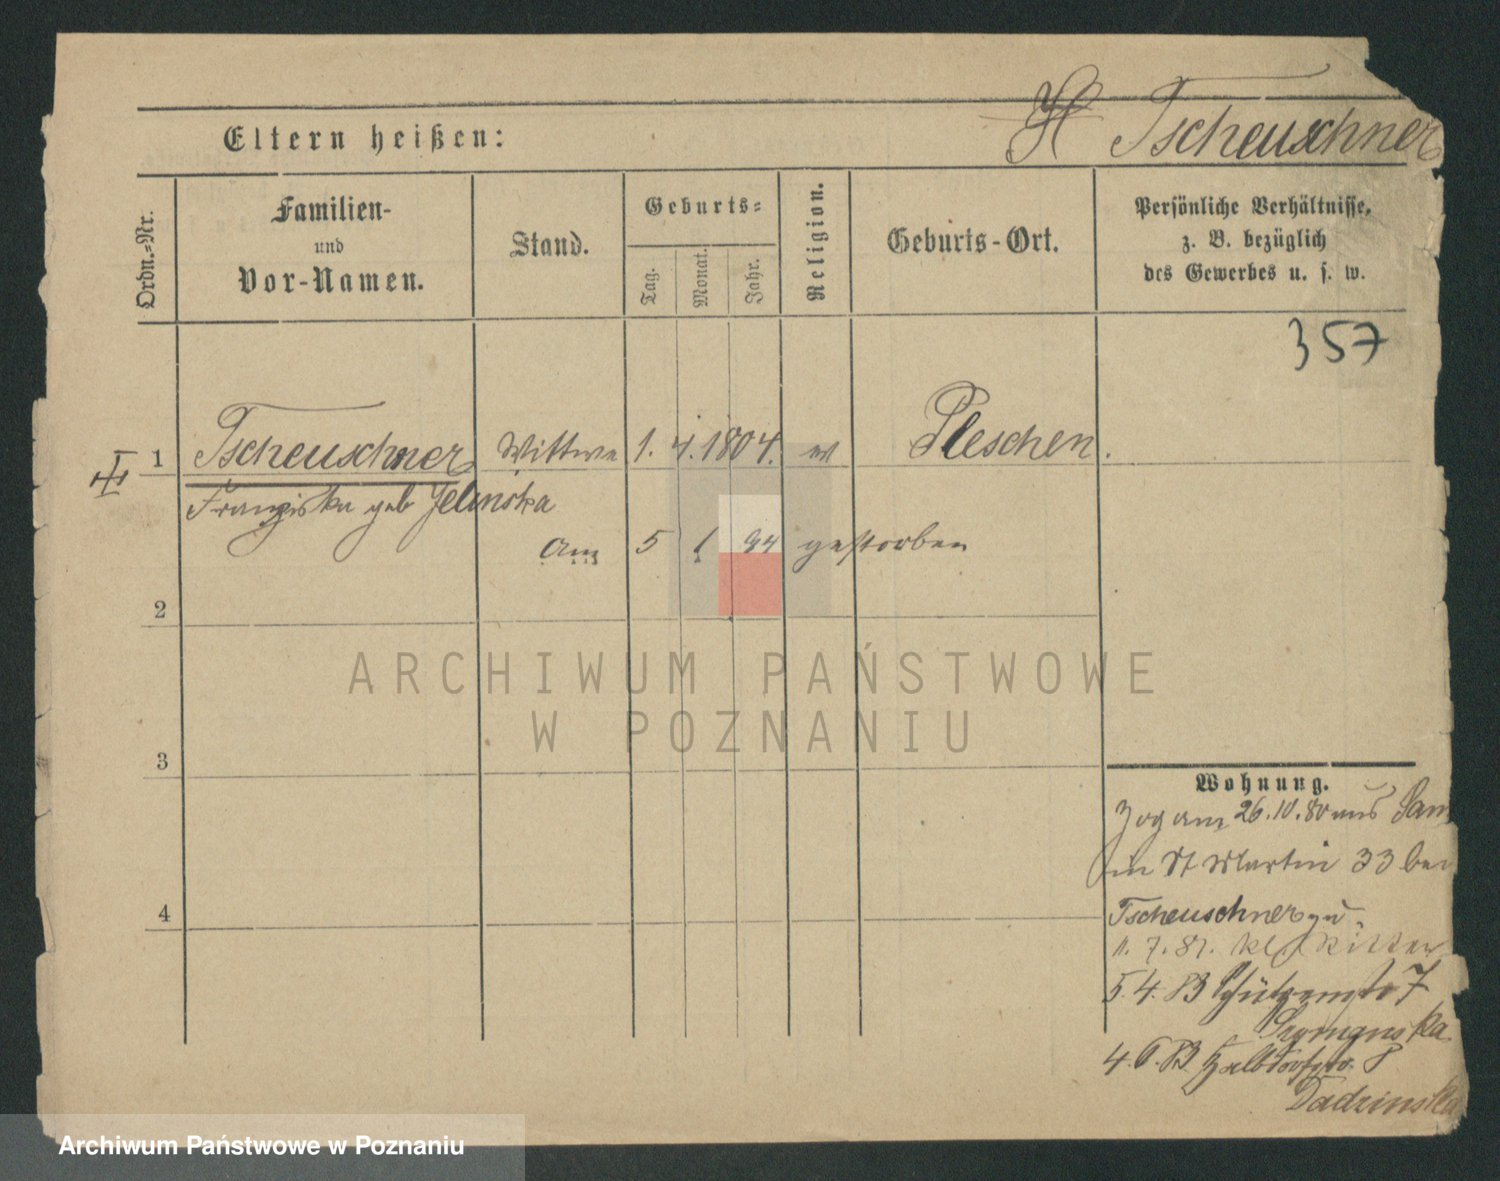 H Tscheuschner
Eltern heißen:
Ordn.-Nr.
Familien-
und
Vor-Namen.
Stand.
Geburts-
Tag.
Monat.
Jahr.
Religion.
Geburts-Ort.
Persönliche Verhältnisse,
z. B. bezüglich
des Gewerbes u. s. w.
357
1 Tscheuschner Wittwe 1. 4. 1804. ev Pleschen.
Franziska geb Jelinska
am 5 1 84 gestorben
2
3
4
ARCHIWUM PAŃSTWOWE
W POZNANIU
Wohnung.
Zog am 26.10.80 aus Sam
in St Martin 33 bei
Tscheuschner zu.
11.7.81. Kl. Ritter
5.4.83 Schützenstr 7
4.6.83 Halbdorfstr. 8
Dadzinska
Archiwum Państwowe w Poznaniu